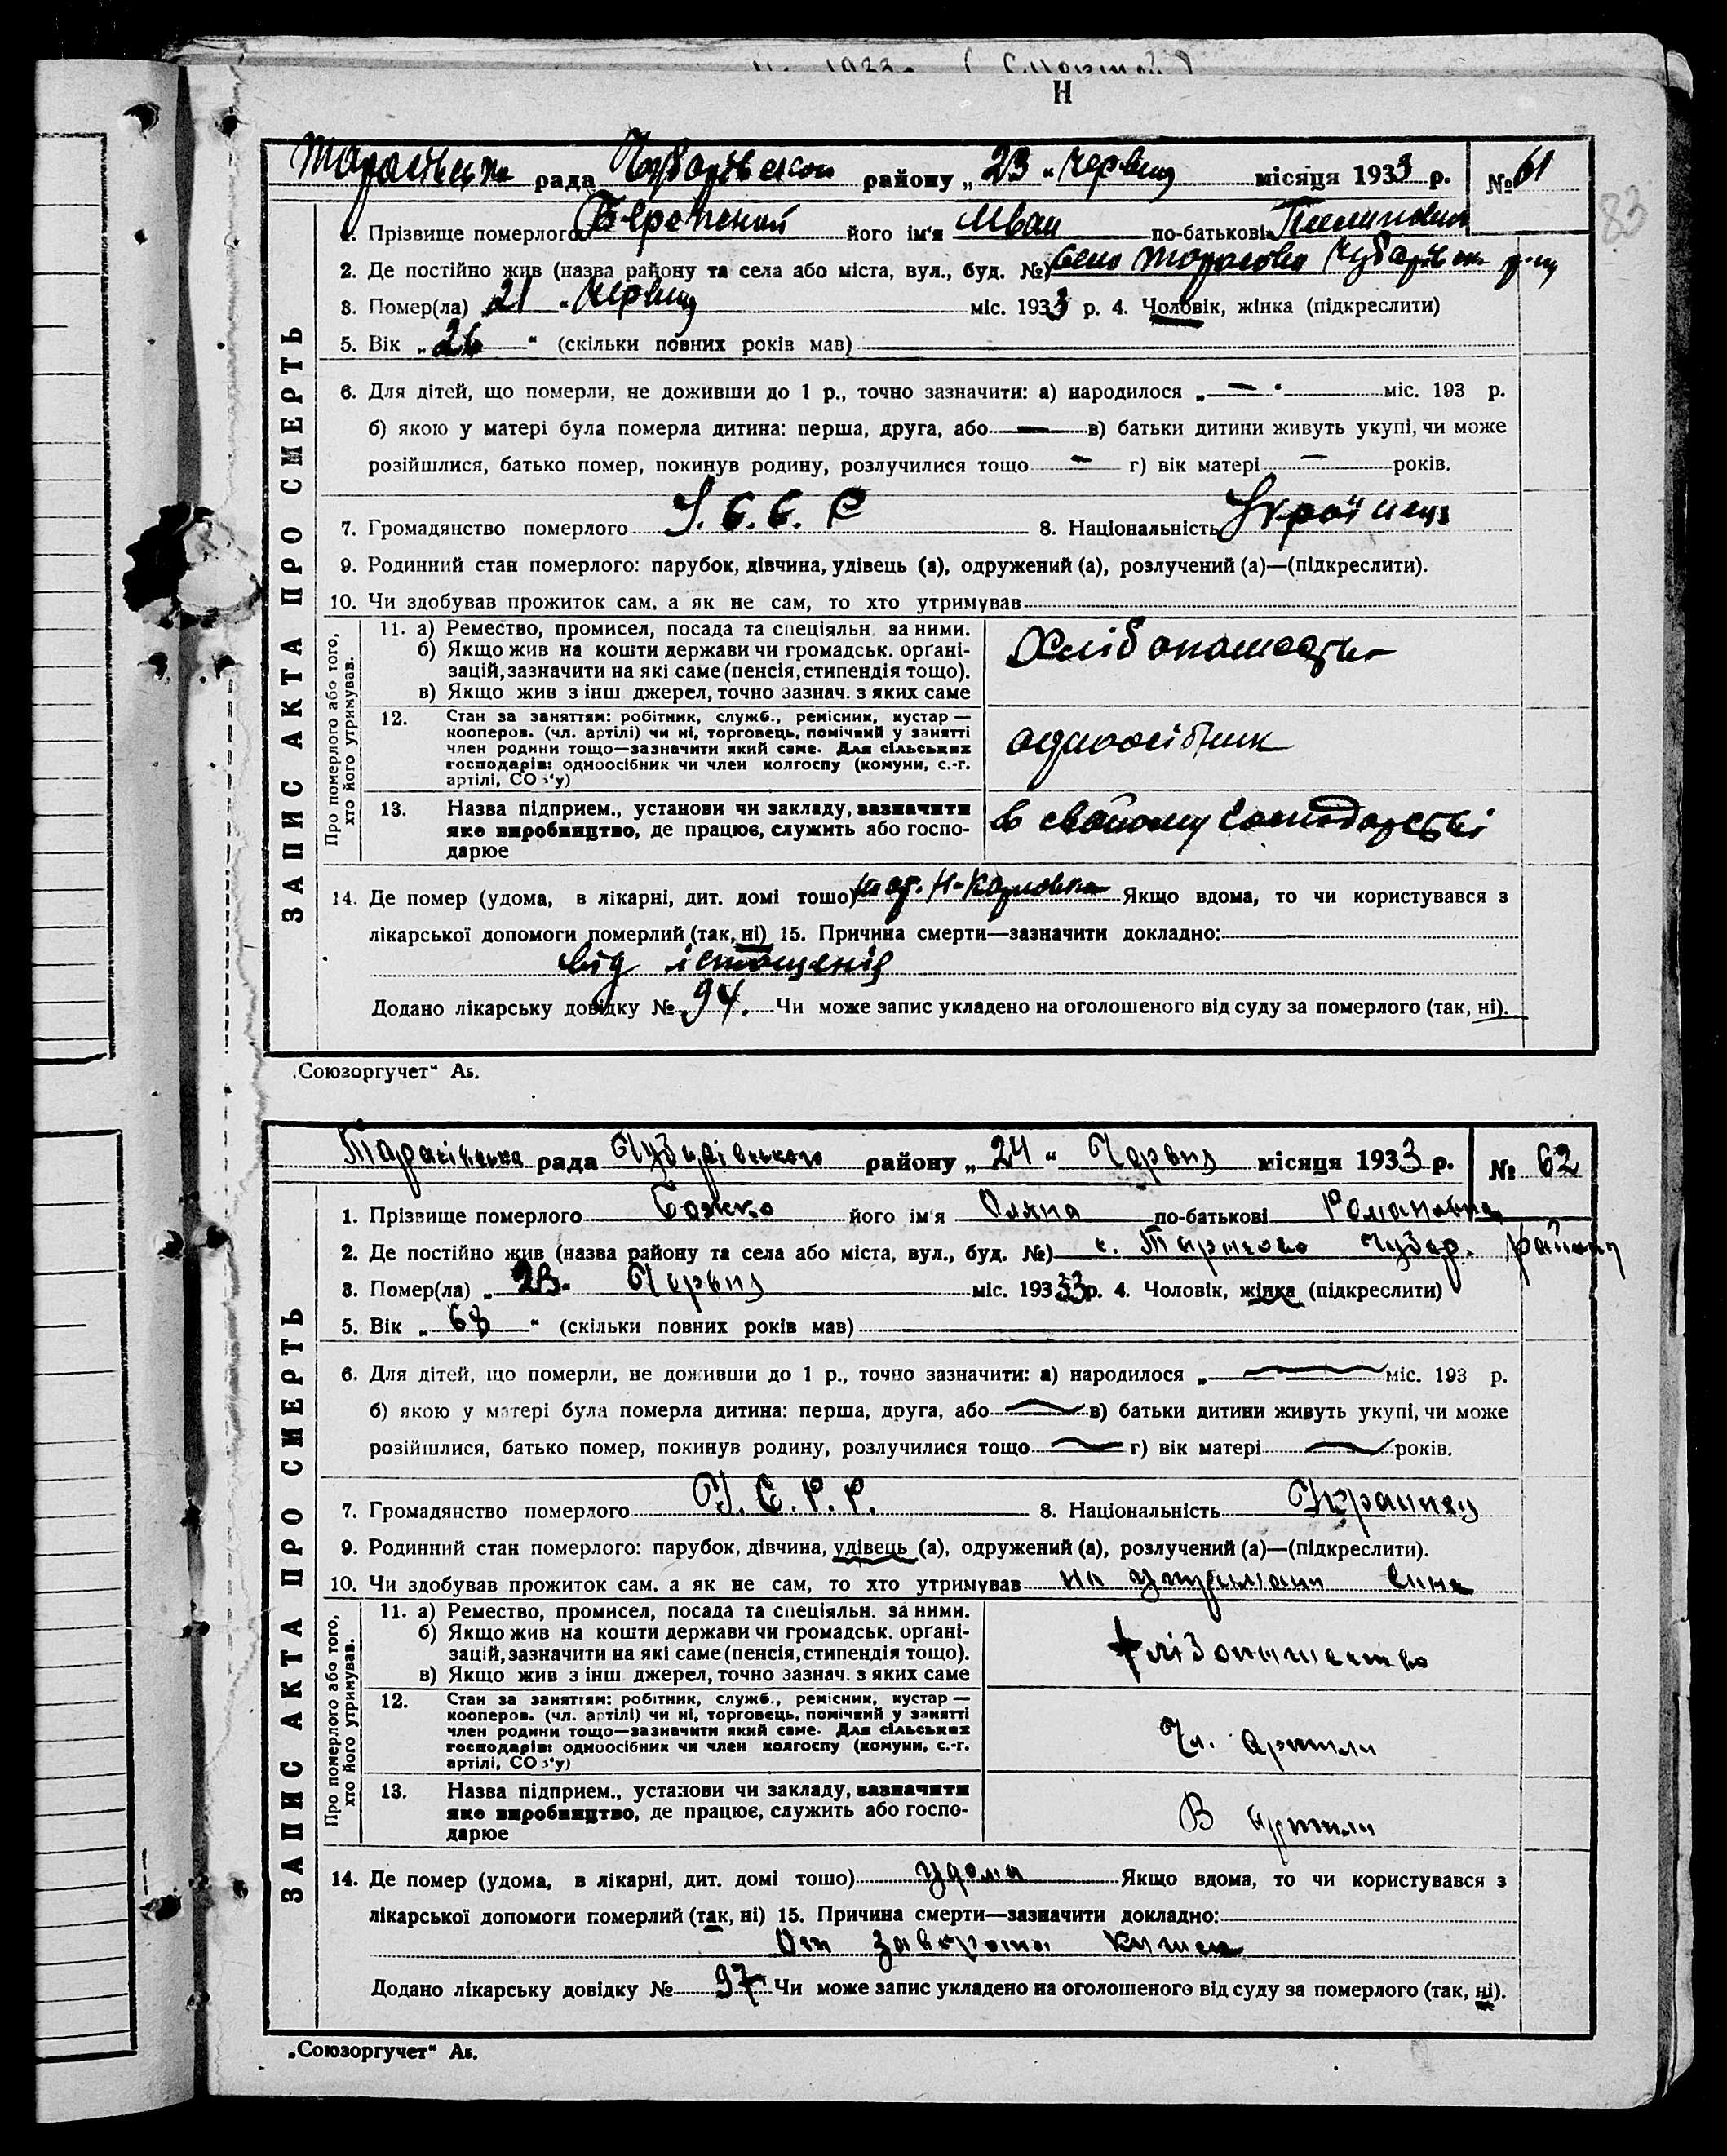 Н
рада Чубарівського району „23“ червня місяця 1933 р. № 61
83
ЗАПИС АКТА ПРО СМЕРТЬ
1. Прізвище померлого його ім'я Иван по-батькові Пилипович
2. Де постійно жив (назва району та села або міста, вул., буд. №) село Торасовка Чубарівськ р-ну
3. Помер(ла) „21“ червня міс. 1933 р. 4. Чоловік, жінка (підкреслити)
5. Вік „26“ (скільки повних років мав)
6. Для дітей, що померли, не доживши до 1 р., точно зазначити: а) народилося „—“ міс. 193 р.
б) якою у матері була померла дитина: перша, друга, або — в) батьки дитини живуть укупі, чи може
розійшлися, батько помер, покинув родину, розлучилися тощо — г) вік матері — років.
7. Громадянство померлого У.С.С.Р 8. Національність Україиець
9. Родинний стан померлого: парубок, дівчина, удівець (а), одружений (а), розлучений (а)—(підкреслити).
10. Чи здобував прожиток сам, а як не сам, то хто утримував
Про померлого або того, хто його утримував.
11. а) Ремество, промисел, посада та спеціяльн. за ними.
б) Якщо жив на кошти держави чи громадськ. орґані-
зацій, зазначити на які саме (пенсія, стипендія тощо).
в) Якщо жив з інш джерел, точно зазнач. з яких саме
Хлібопашество
12. Стан за заняттям: робітник, служб., ремісник, кустар —
кооперов. (чл. артілі) чи ні, торговець, помічний у занятті
член родини тощо—зазначити який саме. Для сільських
господарів: одноосібник чи член колгоспу (комуни, с.-г.
артілі, СОЗ'у)
одноосібник
13. Назва підприєм., установи чи закладу, зазначити
яке виробництво, де працює, служить або госпо-
дарює
в свойому господарстві
14. Де помер (удома, в лікарні, дит. домі тошо) Н-Карловка Якщо вдома, то чи користувався з
лікарської допомоги померлий (так, ні) 15. Причина смерти—зазначити докладно:
від істощенія
Додано лікарську довідку № 94. Чи може запис укладено на оголошеного від суду за померлого (так, ні).
„Союзоргучет“ А5.
Тарасівська рада Чубарівського району „24“ Червня місяця 1933 р. № 62
ЗАПИС АКТА ПРО СМЕРТЬ
1. Прізвище померлого Божко його ім'я Оляна по-батькові Романовна
2. Де постійно жив (назва району та села або міста, вул., буд. №) с. Тарасово Чубар. району
3. Помер(ла) „23“ Червня міс. 19333 р. 4. Чоловік, жінка (підкреслити)
5. Вік „68“ (скільки повних років мав)
6. Для дітей, що померли, не доживши до 1 р., точно зазначити: а) народилося „— міс. 193 р.
б) якою у матері була померла дитина: перша, друга, або — в) батьки дитини живуть укупі, чи може
розійшлися, батько помер, покинув родину, розлучилися тощо — г) вік матері — років.
7. Громадянство померлого У.С.Р.Р. 8. Національність Украинка
9. Родинний стан померлого: парубок, дівчина, удівець (а), одружений (а), розлучений (а)—(підкреслити).
10. Чи здобував прожиток сам, а як не сам, то хто утримував на утримані сина
Про померлого або того, хто його утримував.
11. а) Ремество, промисел, посада та спеціяльн. за ними.
б) Якщо жив на кошти держави чи громадськ. орґані-
зацій, зазначити на які саме (пенсія, стипендія тощо).
в) Якщо жив з інш джерел, точно зазнач. з яких саме
Хлібопашество
12. Стан за заняттям: робітник, служб., ремісник, кустар —
кооперов. (чл. артілі) чи ні, торговець, помічний у занятті
член родини тощо—зазначити який саме. Для сільських
господарів: одноосібник чи член колгоспу (комуни, с.-г.
артілі, СОЗ'у)
Чл. артили
13. Назва підприєм., установи чи закладу, зазначити
яке виробництво, де працює, служить або госпо-
дарює
В артили
14. Де помер (удома, в лікарні, дит. домі тошо) удома Якщо вдома, то чи користувався з
лікарської допомоги померлий (так, ні) 15. Причина смерти—зазначити докладно:
От заворота кишек
Додано лікарську довідку № 97 Чи може запис укладено на оголошеного від суду за померлого (так, ні).
„Союзоргучет“ А5.